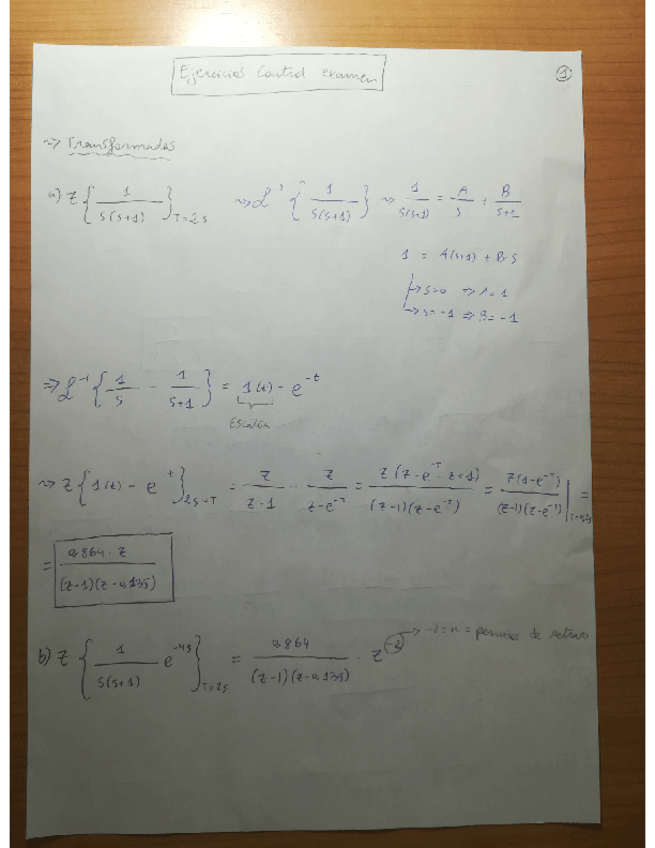 Ejercicios Control examen
1
~> Transformadas
a) Z{ 1 / s(s+1) }T=2s ~> L⁻¹ { 1 / s(s+1) } ~> 1 / s(s+1) = A / s + B / s+1
1 = A(s+1) + B·s
↳ s=0 => A=1
↳ s=-1 => B=-1
=> L⁻¹ { 1 / s - 1 / s+1 } = 1(t) - e^-t
Escalón
~> Z{ 1(t) - e^-t }2s=T = z / z-1 - z / z-e^-T = z(z-e^-T-z+1) / (z-1)(z-e^-T) = z(1-e^-T) / (z-1)(z-e^-T) |T=2s =
= 0,864·z / (z-1)(z-0,135)
b) Z { 1 / s(s+1) e^-4s }T=2s = 0,864 / (z-1)(z-0,135) · z^-2 -> -2=n= periodos de retraso